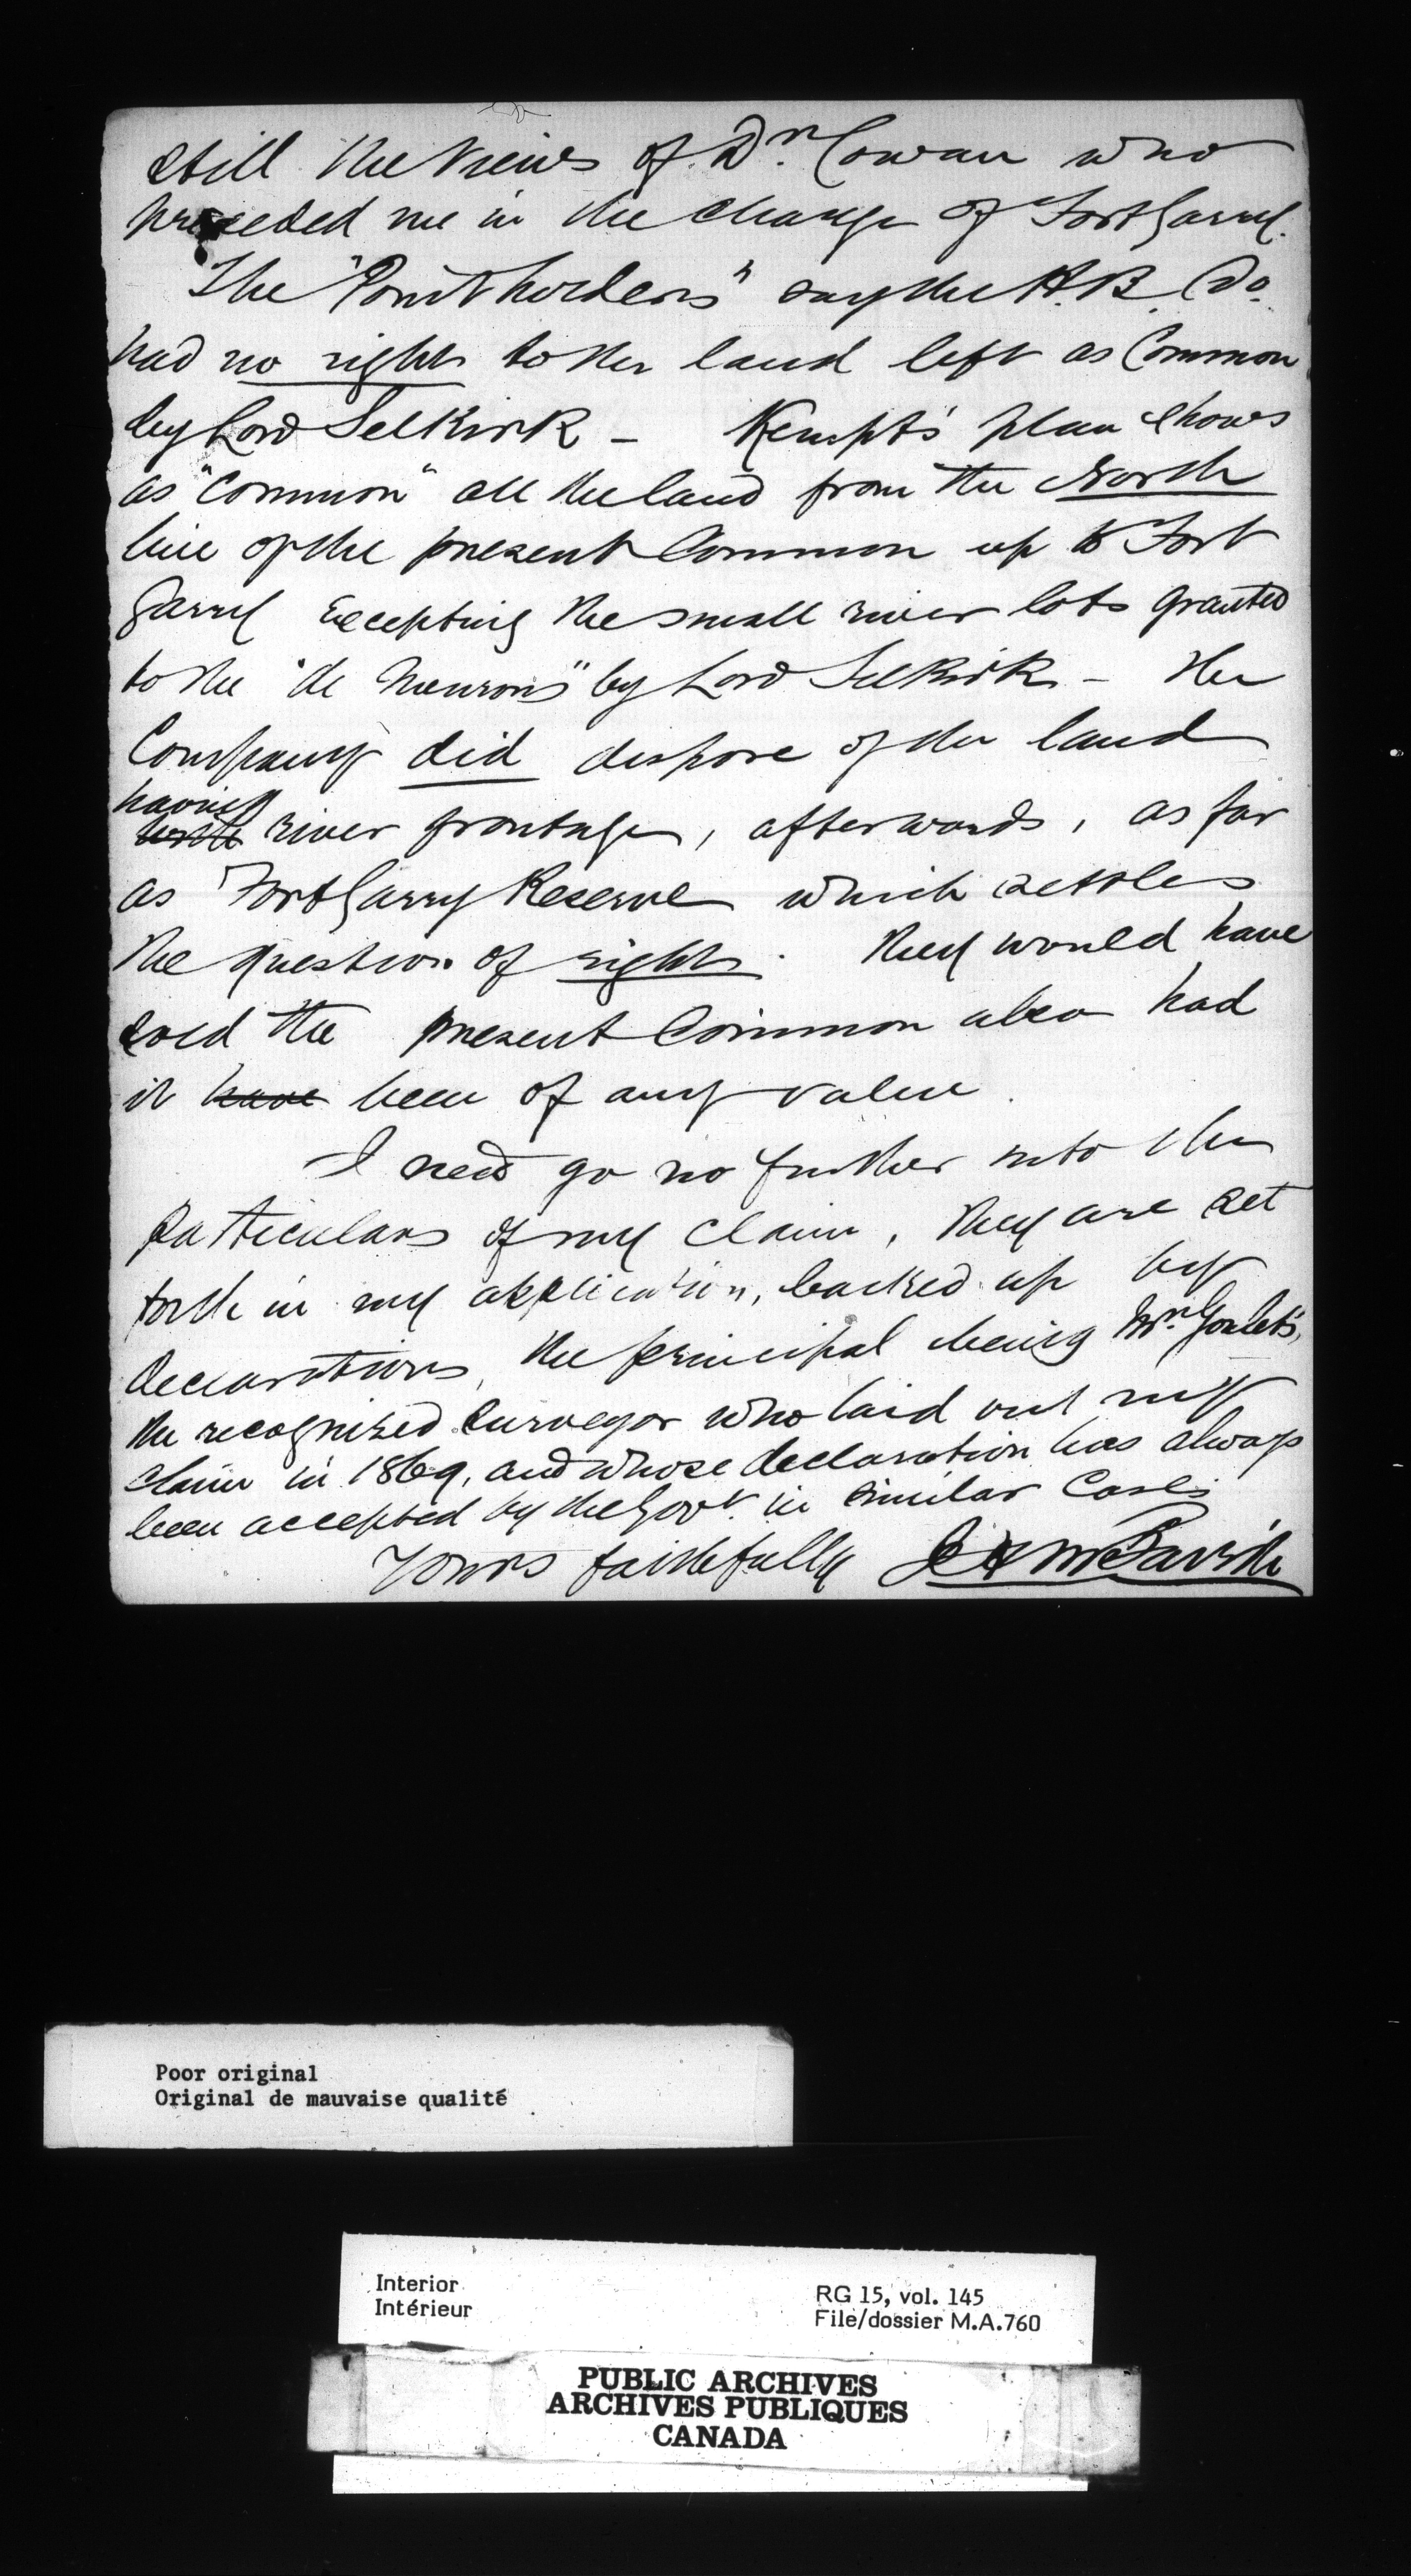 still the views of Dr. Cowan who
preceded me in the charge of Fort Garry.
The "Point holders" say the H.B. Co.
had no right to the land left as Common
by Lord Selkirk - Kempt's plan shows
as "Common" all the land from the North
line of the present Common up to Fort
Garry excepting the small river lots granted
to the "de Meurons" by Lord Selkirk - The
Company did dispose of the land
having
river frontage, afterwards, as far
as Fort Garry Reserve which settles
the question of right. They would have
sold the present Common also had
it have been of any value.
I need go no further into the
particulars of my claim, they are set
forth in my application, backed up by
declarations, the principal being Mr. Goulet's,
the recognized surveyor who laid out my
claim in 1869, and whose declaration has always
been accepted by the Govt. in similar Cases
Yours faithfully J H McTavish
Poor original
Original de mauvaise qualité
Interior
Intérieur
RG 15, vol. 145
File/dossier M.A.760
PUBLIC ARCHIVES
ARCHIVES PUBLIQUES
CANADA